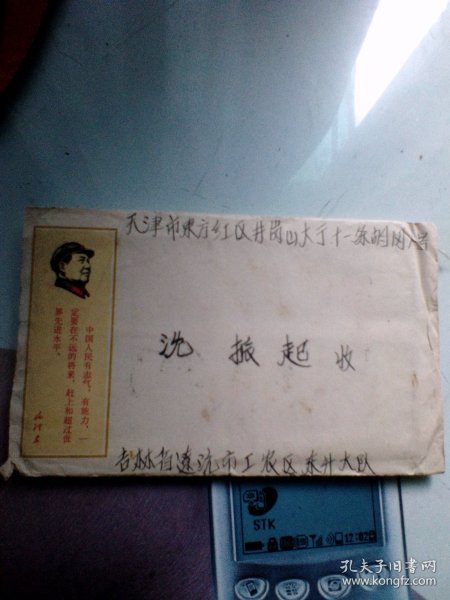 天津市东方红区井岗山大丁十一条胡同八号
沈 振 起 收
中国人民有志气，有能力，一
定要在不远的将来，赶上和超过世
界先进水平。
毛泽东
吉林省辽沅市工农区东升大队
STK
12:02
孔夫子旧书网
www.kongfz.com